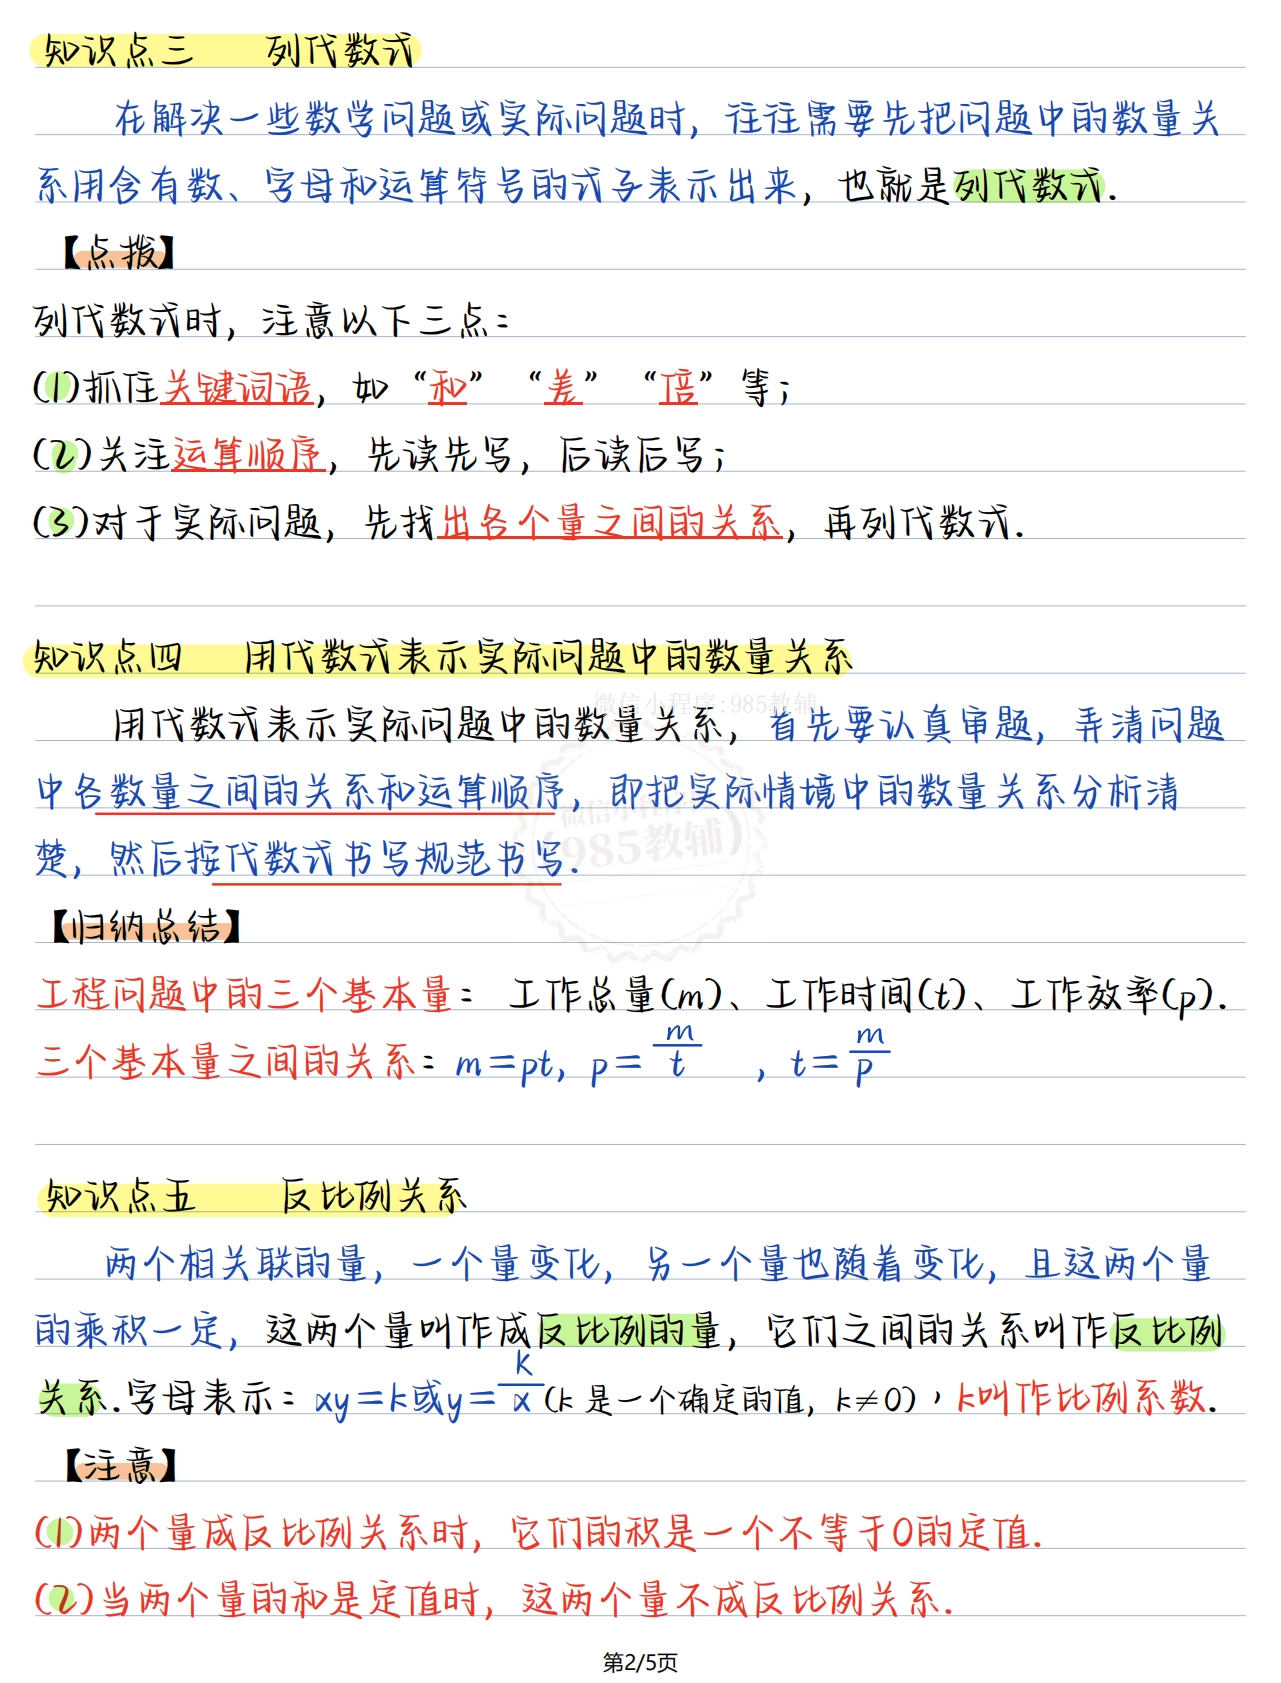 知识点三 列代数式
在解决一些数学问题或实际问题时，往往需要先把问题中的数量关
系用含有数、字母和运算符号的式子表示出来，也就是列代数式.
【点拨】
列代数式时，注意以下三点：
(1)抓住关键词语，如“和”“差”“倍”等；
(2)关注运算顺序，先读先写，后读后写；
(3)对于实际问题，先找出各个量之间的关系，再列代数式.
知识点四 用代数式表示实际问题中的数量关系
微信小程序:985教辅
用代数式表示实际问题中的数量关系，首先要认真审题，弄清问题
中各数量之间的关系和运算顺序，即把实际情境中的数量关系分析清
微信小程序
(985教辅)
楚，然后按代数式书写规范书写.
【归纳总结】
工程问题中的三个基本量：工作总量(m)、工作时间(t)、工作效率(p).
三个基本量之间的关系：m=pt，p=m/t，t=m/p
知识点五 反比例关系
两个相关联的量，一个量变化，另一个量也随着变化，且这两个量
的乘积一定，这两个量叫作成反比例的量，它们之间的关系叫作反比例
关系.字母表示：xy=k或y=k/x(k 是一个确定的值，k≠0)，k叫作比例系数.
【注意】
(1)两个量成反比例关系时，它们的积是一个不等于0的定值.
(2)当两个量的和是定值时，这两个量不成反比例关系.
第2/5页